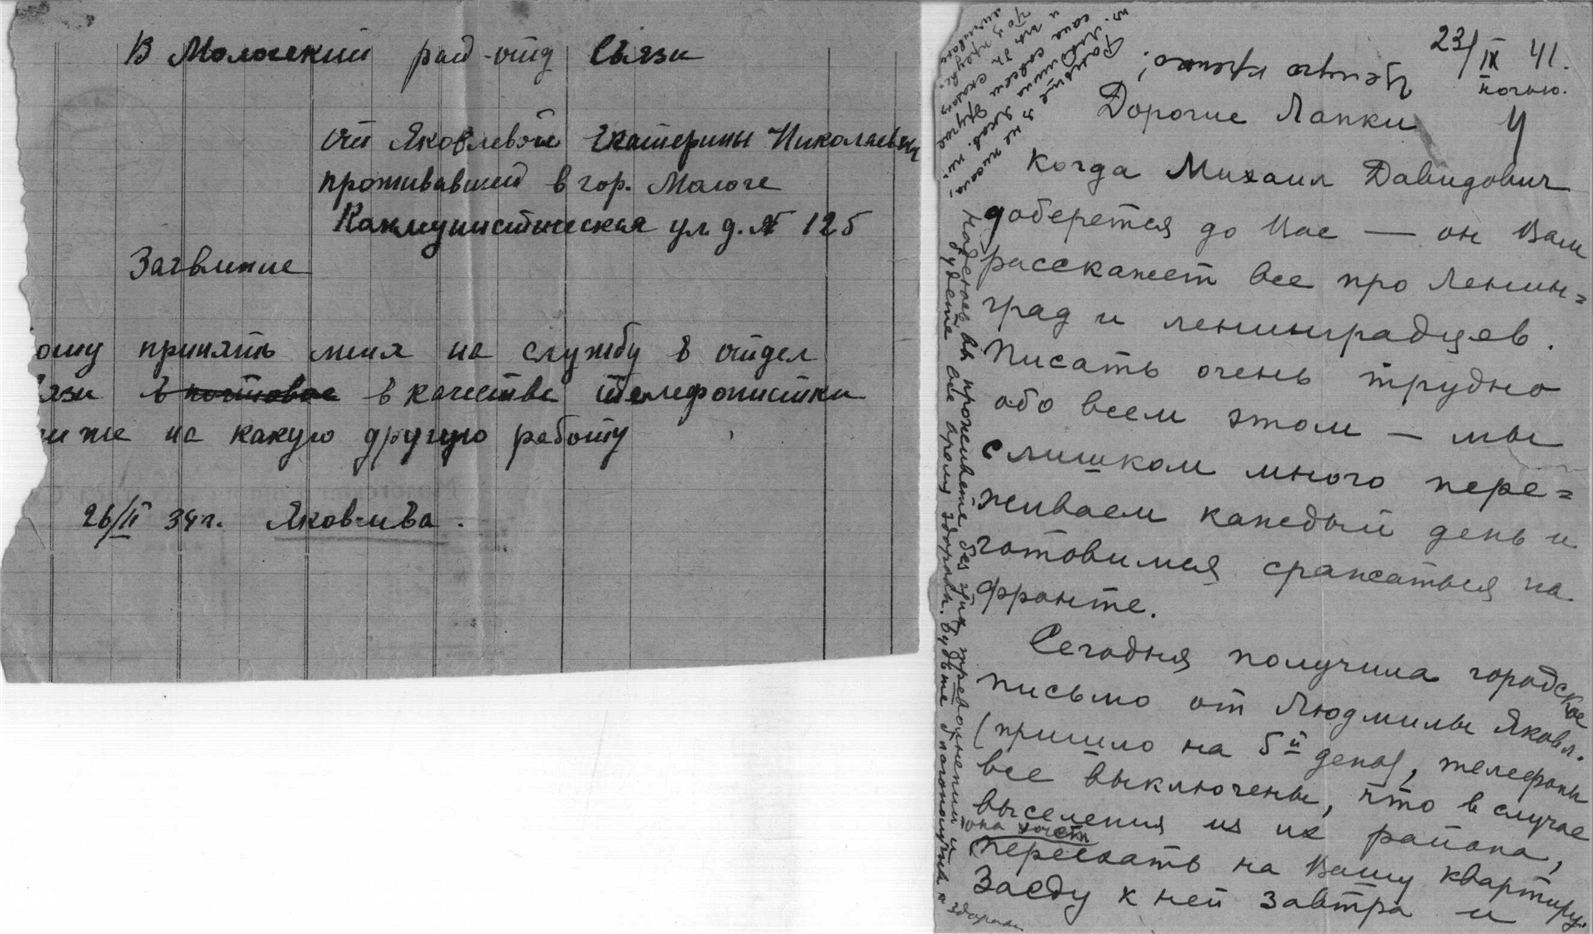 В Мологский рай-отд Связи
от Яковлевой Екатерины Николаевны
проживавшей в гор. Мологе
Коммунистическая ул. д. № 125
Заявление
ошу принять меня на службу в отдел
язи в качестве телефонистки
и же на какую другую работу
26/II 34г. Яковлева.
23/IX 41.
ночью.
Дорогие Лапки
Когда Михаил Давидович
доберется до Вас — он Вам
расскажет все про Ленин=
град и ленинградцев.
Писать очень трудно
обо всем этом — мы
слишком много пере=
живаем каждый день и
готовимся сражаться на
фронте.
Сегодня получила городское
письмо от Людмилы Яковл.
(пришло на 5й день), телефоны
все выключены, что в случае
выселения из их района,
она хочет
переехать на Вашу квартиру.
Заеду к ней завтра и
Надеюсь вы проживете без этих треволнений и
будете все время здоровы. Будьте благополучны и
здоровы